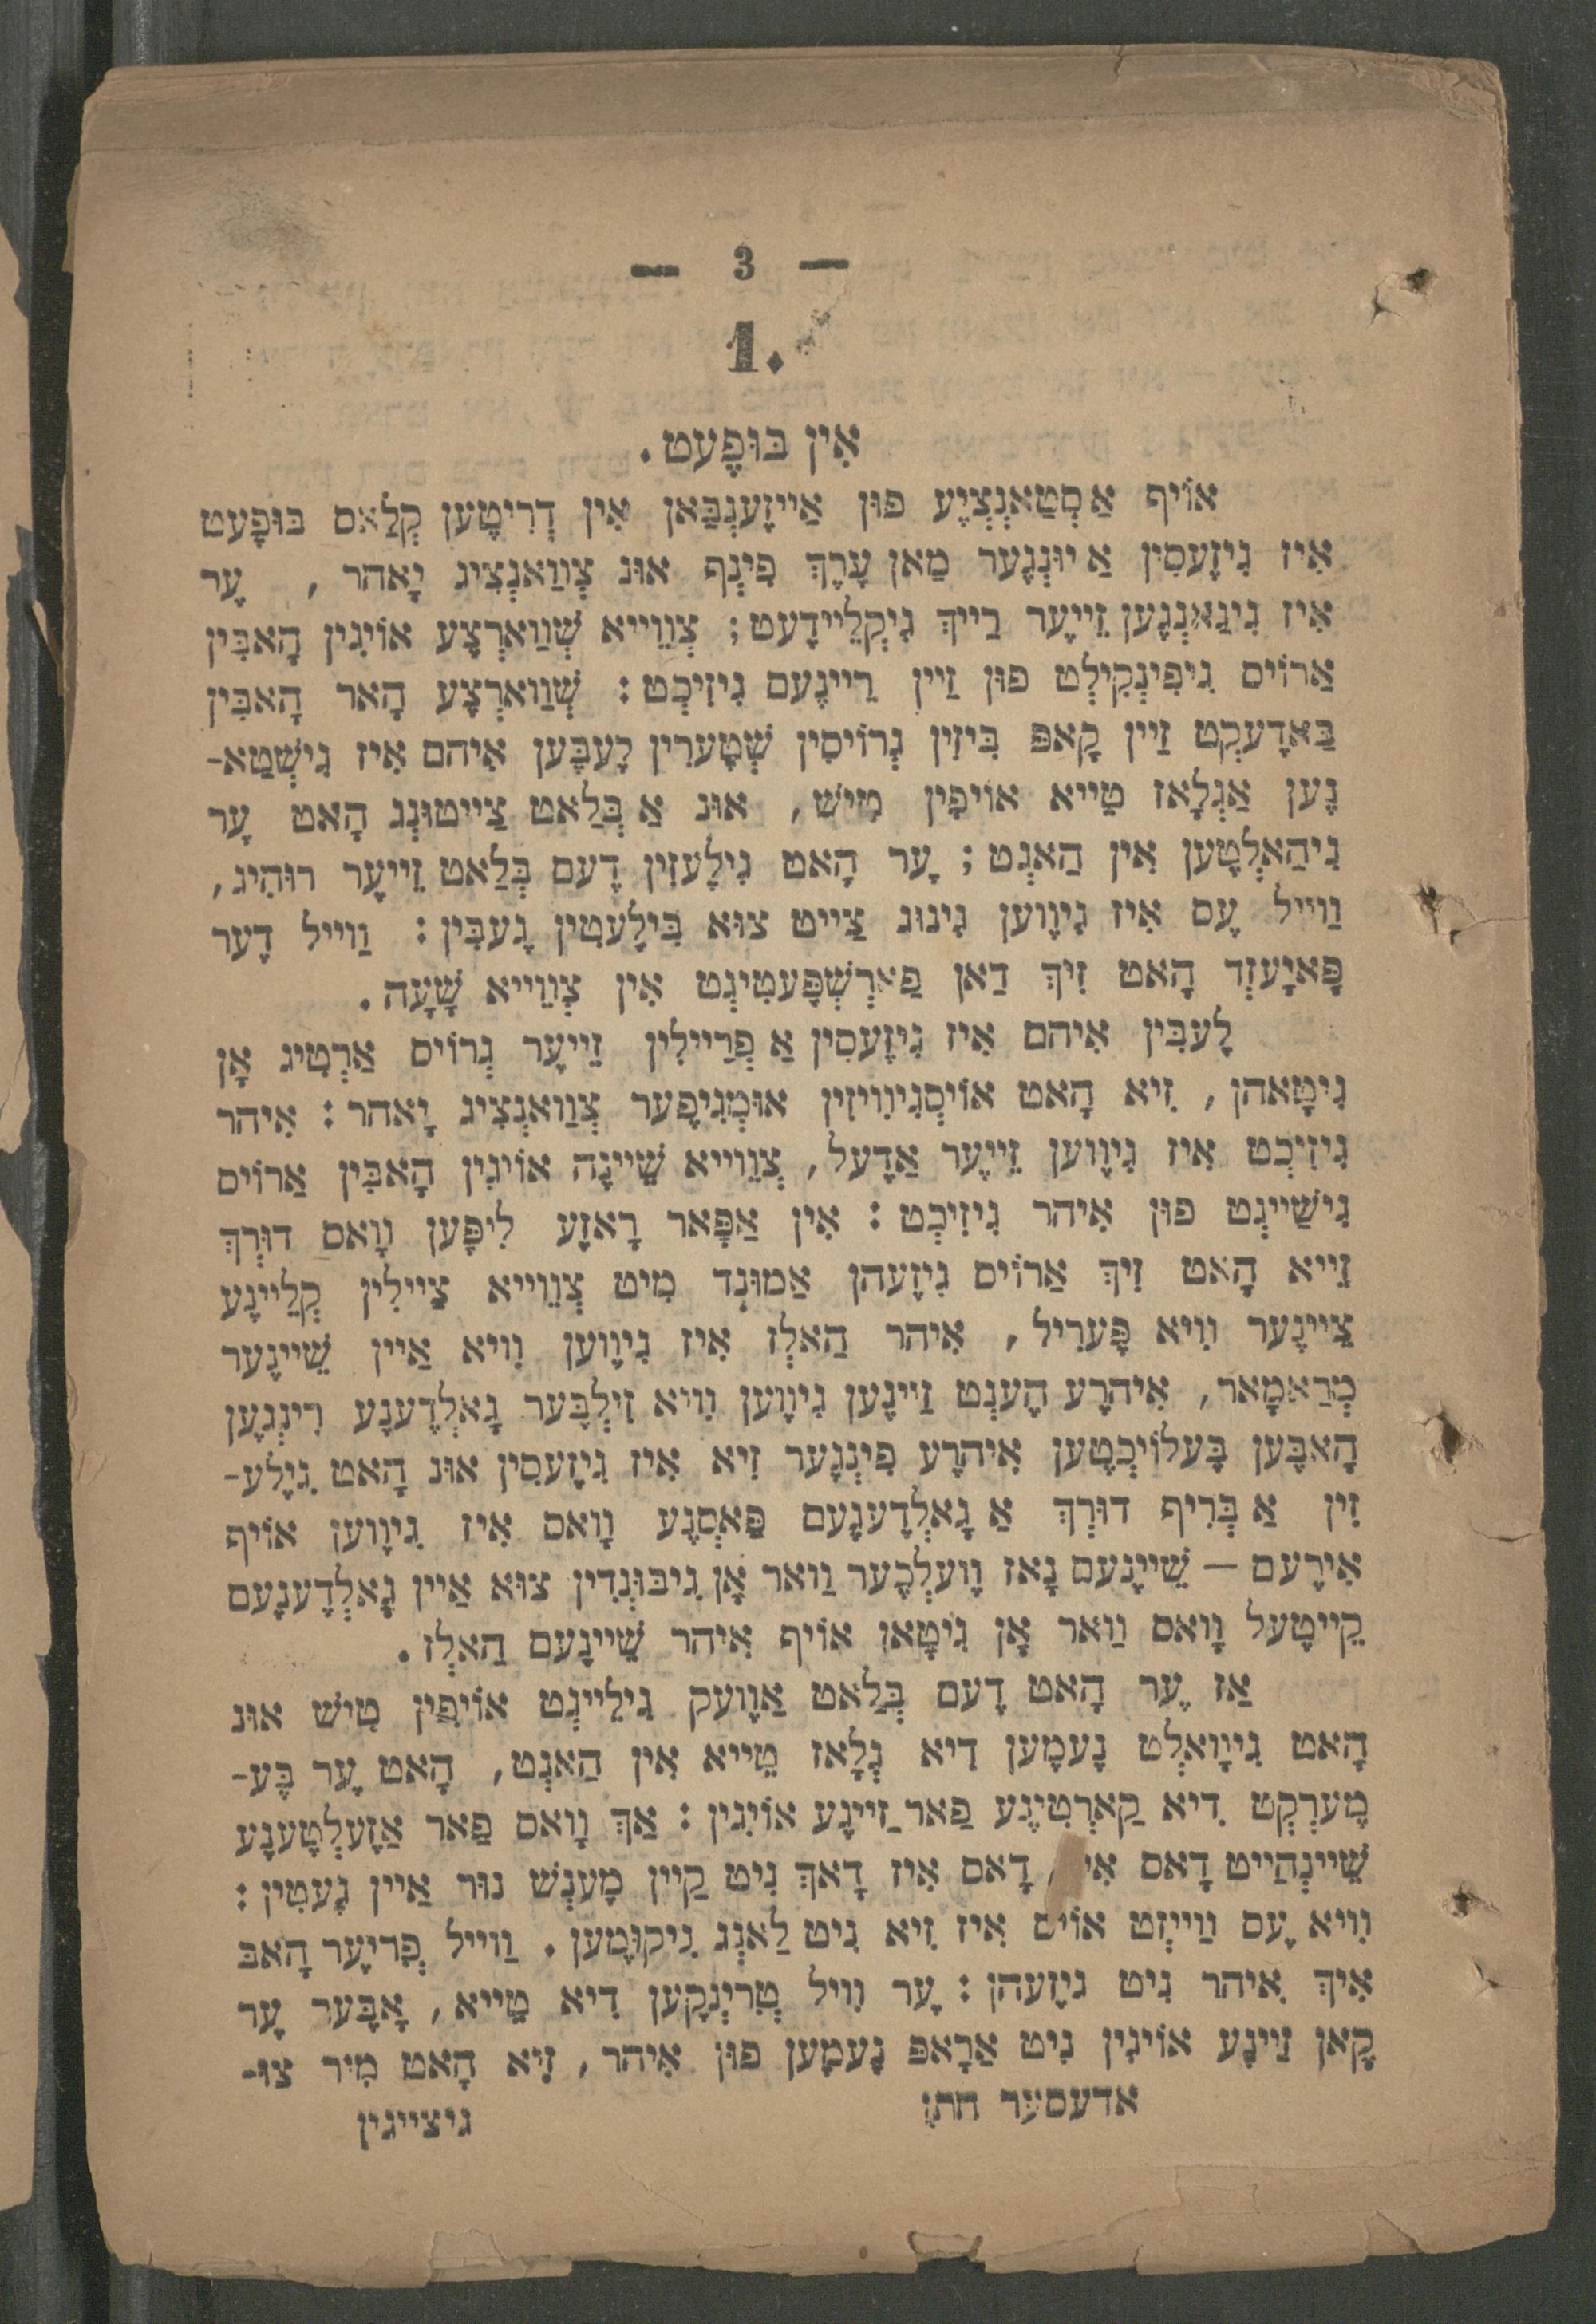 — 3 —
1.
אִין בּוּפֶעט.
אוֹיף אַ סְטַאנְצִיֶע פוּן אַייזֶענְבַּאן אִין דְרִיטֶען קְלַאס בּוּפֶעט
אִיז גִיזֶעסִין אַ יוּנְגֶער מַאן עֶרֶךְ פִינְף אוּנ צְוַואנְצִיג יָאהר, עֶר
אִיז גִיגַאנְגֶען זֵייעֶר רַייךְ גִיקְלֵיידֶעט; צְוֵוייא שְׁוַוארְצֶע אוֹיגִין הָאבִּין
אַרוֹיס גִיפִינְקִילְט פוּן זַיין רֵיינֶעם גִיזִיכְט: שְׁוַוארְצֶע הָאר הָאבִּין
בַּאדֶעקְט זַיין קָאפּ בִּיזִין גְרוֹיסִין שְׁטֶערִין לֶעבֶּען אִיהם אִיז גִישְׁטַא-
נֶען אַגְלָאז טֵייא אוֹיפִין טִישׁ, אוּנ אַ בְּלַאט צַייטוּנְג הָאט עֶר
גִיהַאלְטֶען אִין הַאנְט; עֶר הָאט גִילֶעזִין דֶעם בְּלַאט זֵייעֶר רוּהִיג,
וַוייל עֶס אִיז גִיוֶוען גִינוּג צַייט צוּא בִּילֶעטִין גֶעבִּין: וַוייל דֶער
פָּאיֶעזְד הָאט זִיךְ דַאן פַארְשְׁפֶּעטִיגְט אִין צְוֵוייא שָׁעָה.
לֶעבִּין אִיהם אִיז גִיזֶעסִין אַ פְרַיילִין זֵייעֶר גְרוֹיס אַרְטִיג אָן
גִיטָאהן, זִיא הָאט אוֹיסְגִיוִויזִין אוּמְגִיפֶער צְוַואנְצִיג יָאהר: אִיהר
גִיזִיכְט אִיז גִיוֶוען זֵייעֶר אֵדֶעל, צְוֵוייא שֵׁיינֶה אוֹיגִין הָאבִּין אַרוֹיס
גִישַׁיינְט פוּן אִיהר גִיזִיכְט: אִין אַפָּאר רָאזֶע לִיפֶּען וָואס דוּרְךְ
זֵייא הָאט זִיךְ אַרוֹיס גִיזֶעהן אַמוּנְד מִיט צְוֵוייא צַיילִין קְלֵיינֶע
צֵיינֶער וִויא פֶּערִיל, אִיהר הַאלְז אִיז גִיוֶוען וִויא אַיין שֵׁיינֶער
מְרַאמָאר, אִיהרֶע הֶענְט זַיינֶען גִיוֶוען וִויא זִילְבֶּער גָאלְדֶענֶע רִינְגֶען
הָאבֶּען בֶּעלוֹיכְטֶען אִיהרֶע פִינְגֶער זִיא אִיז גִיזֶעסִין אוּנ הָאט גִילֶע-
זִין אַ בְּרִיף דוּרְךְ אַ גָאלְדֶענֶעם פַּאסְנֶע וָואס אִיז גִיוֶוען אוֹיף
אִירֶעם — שֵׁיינֶעם נָאז וֶועלְכֶער וַואר אָן גִיבּוּנְדִין צוּא אַיין גָאלְדֶענֶעם
קֵייטֶעל וָואס וַואר אָן גִיטָאן אוֹיף אִיהר שֵׁיינֶעם הַאלְז.
אַז עֶר הָאט דֶעם בְּלַאט אַוֶועק גִילֵייגְט אוֹיפִין טִישׁ אוּנ
הָאט גִיוָואלְט נֶעמֶען דִיא גְלָאז טֵייא אִין הַאנְט, הָאט עֶר בֶּע-
מֶערְקְט דִיא קַארְטִינֶע פַאר זַיינֶע אוֹיגִין: אַךְ וָואס פַאר אַזֶעלְטֶענֶע
שֵׁיינְהַייט דָאס דָאס אִיז דָאךְ נִיט קַיין מֶענְשׁ נוּר אַיין גֶעטִין:
וִויא עֶס וַוייזְט אוֹיס אִיז זִיא נִיט לַאנְג גִיקוּמֶען. וַוייל פְרִיעֶר הָאב
אִיךְ אִיהר נִיט גִיזֶעהן: עֶר וִויל טְרִינְקֶען דִיא טֵייא, אָבֶּער עֶר
קָאן זַיינֶע אוֹיגִין נִיט אַרָאפּ נֶעמֶען פוּן אִיהר, זִיא הָאט מִיר צוּ-
אדעסער חתן
גיצייגין